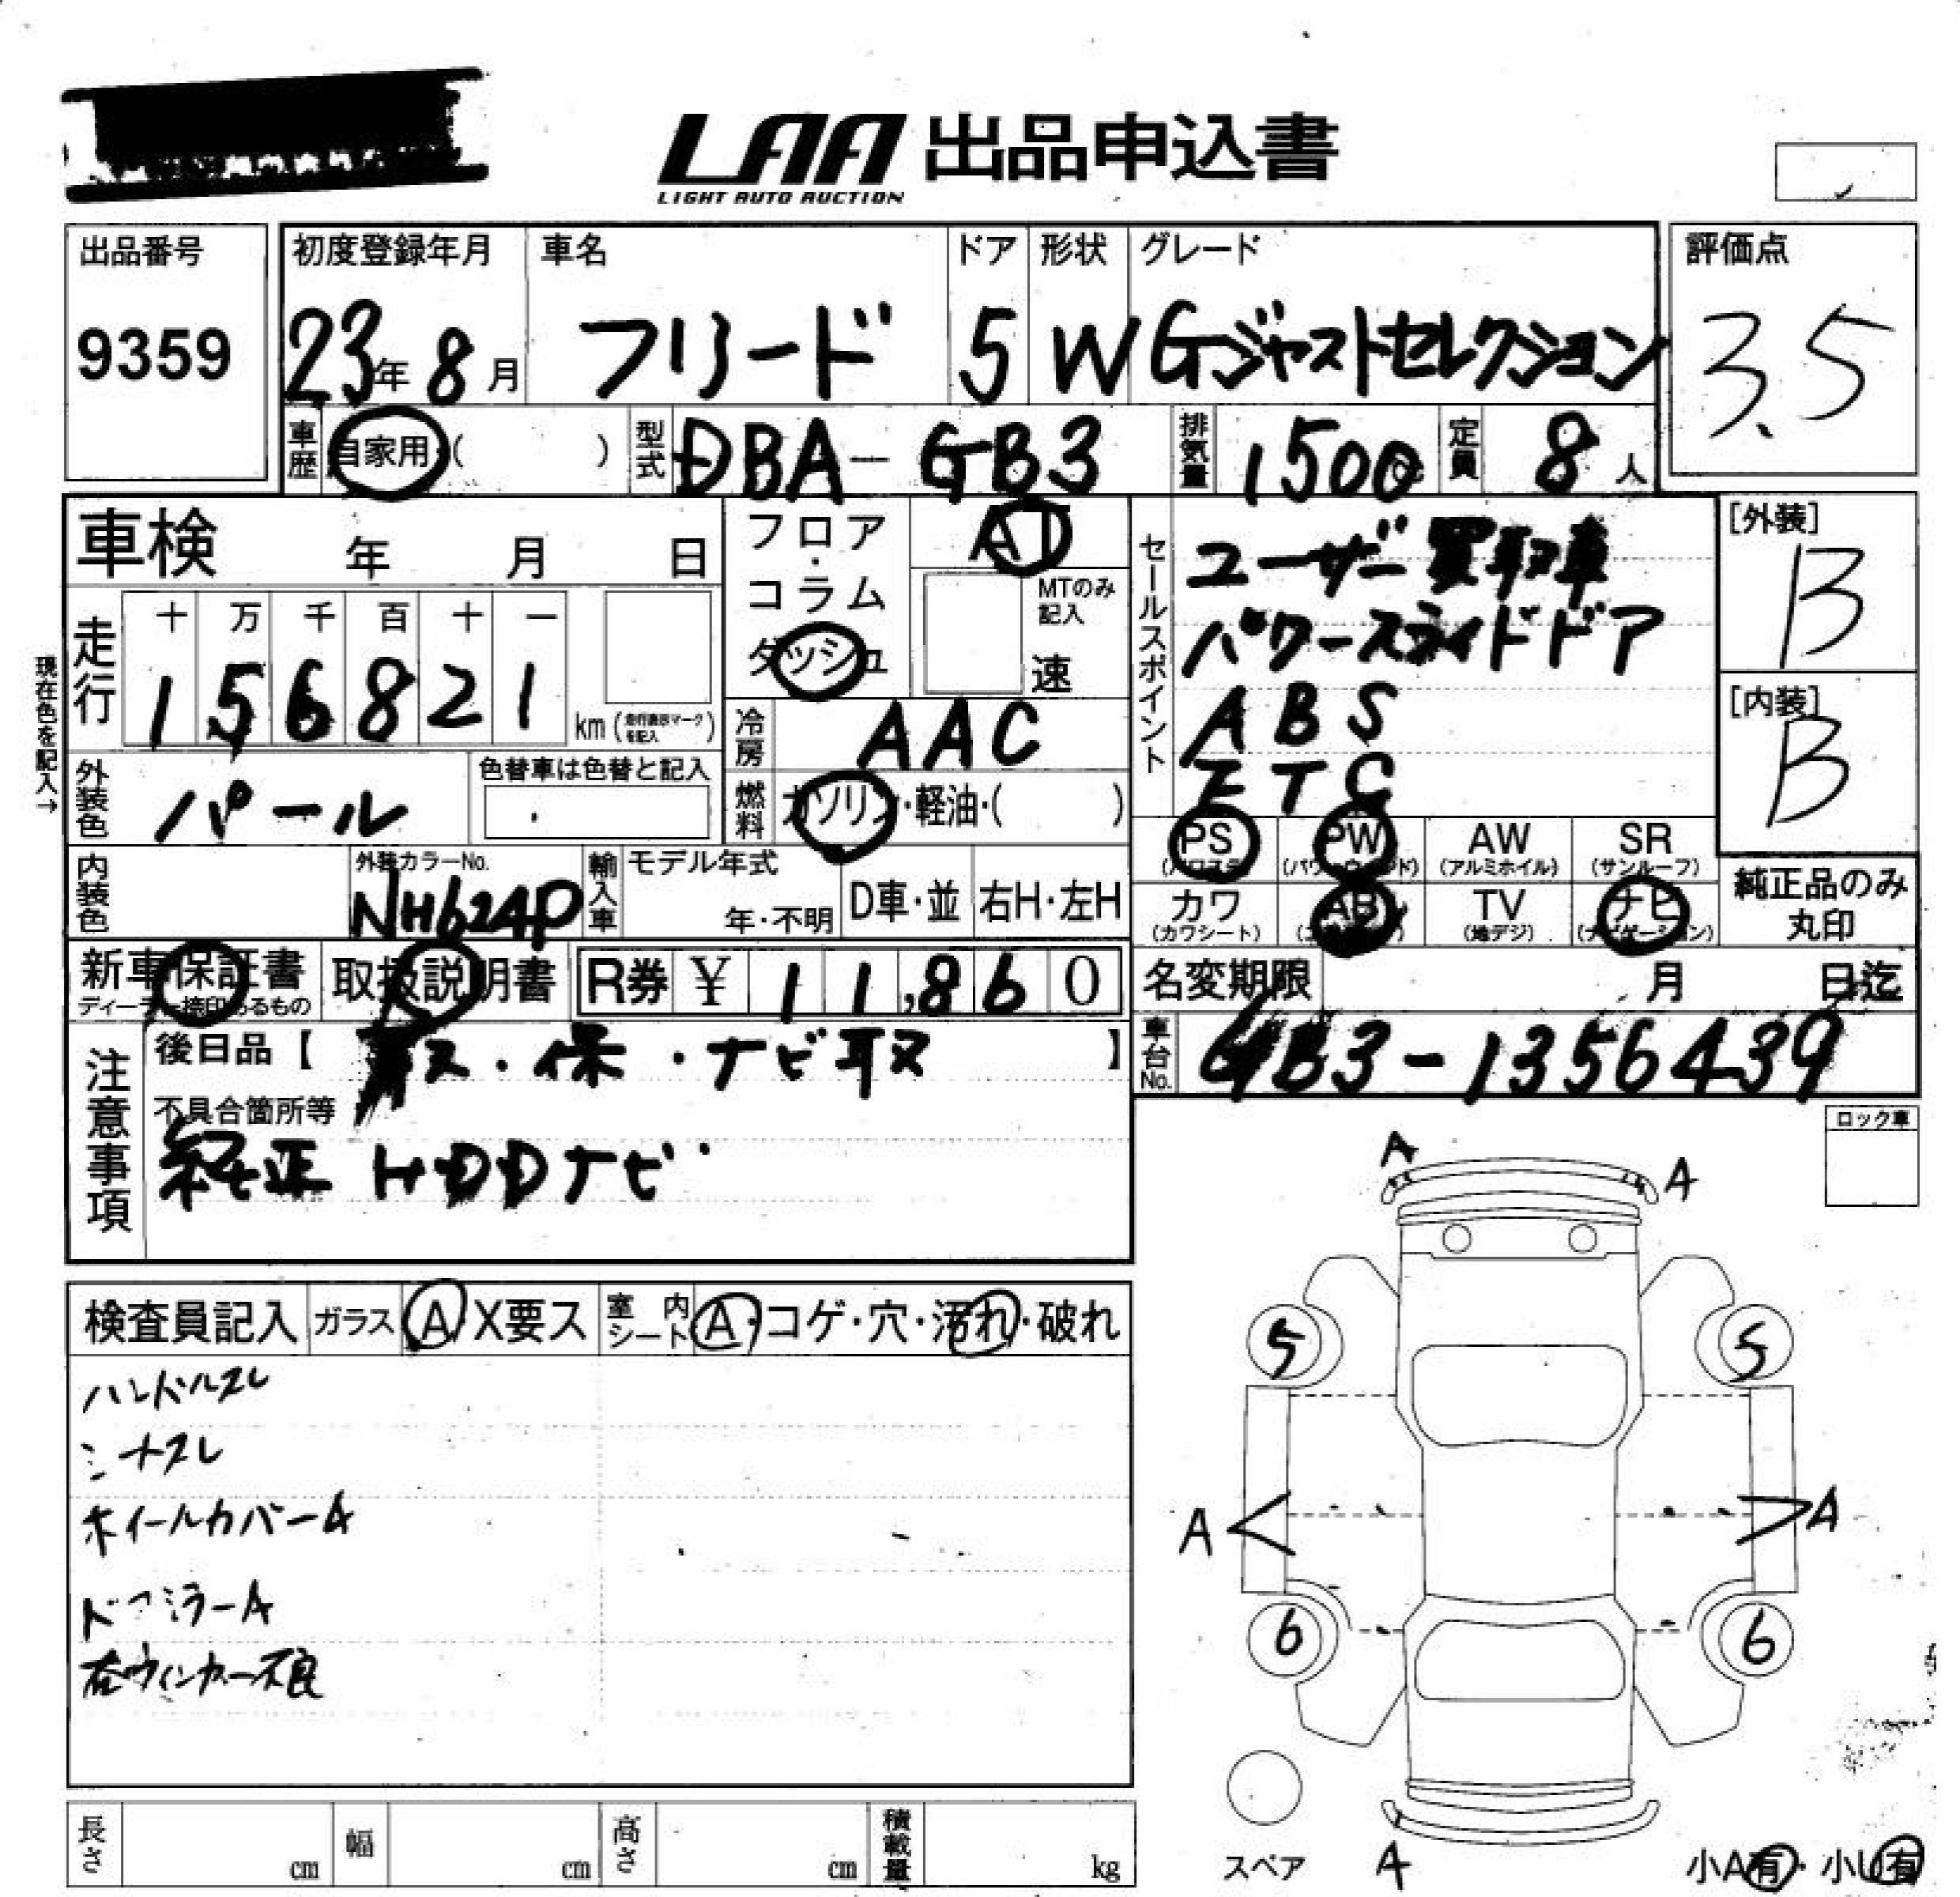 LAA 出品申込書
LIGHT AUTO AUCTION
出品番号
9359
初度登録年月 車名 ドア 形状 グレード
23年 8月 フリード 5 W Gジャストセレクション
評価点
3.5
車歴 自家用・( ) 型式 DBA-GB3 排気量 1500cc 定員 8人
車検 年 月 日
フロア・コラム
ダッシュ
AT
MTのみ記入
速
走行 十 万 千 百 十 一
1 5 6 8 2 1 km (走行表示マークを記入)
現在色を記入→
外装色 パール
色替車は色替と記入
冷房 AAC
燃料 ガソリン・軽油・( )
セールスポイント
ユーザー買取車
パワースライドドア
ABS
ETC
[外装]
B
[内装]
B
PS (パワステ) PW AW (アルミホイル) SR (サンルーフ)
カワ (カワシート) AB TV (地デジ) ナビ (ナビゲーション)
純正品のみ丸印
内装色
外装カラーNo.
NH624P
輸入車 モデル年式
年・不明 D車・並 右H・左H
新車保証書
ディーラー捺印あるもの
取扱説明書
R券 ¥ 11,860
名変期限 月 日迄
車台No. GB3-1356439
注意事項
後日品【 ・保・ナビ取 】
不具合箇所等
純正 HDDナビ
ロック車
検査員記入 ガラス A X要ス 室内シート A・コゲ・穴・汚れ・破れ
ハンドルスレ
シートスレ
ホイールカバーA
ドアミラーA
右ウィンカー不良
A A
5 5
A A
6 6
スペア A 小A有・小U有
長さ cm 幅 cm 高さ cm 積載量 kg